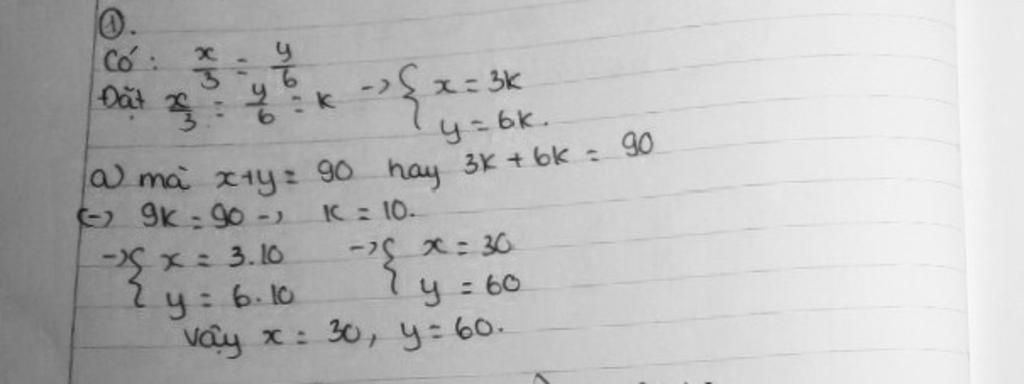 ①.
Có: x/3 = y/6
Đặt x/3 = y/6 = k -> { x = 3k
y = 6k.
a) mà x+y = 90 hay 3k + 6k = 90
(-) 9k = 90 -> k = 10.
-> { x = 3.10 -> { x = 30
y = 6.10 y = 60
Vậy x = 30, y = 60.